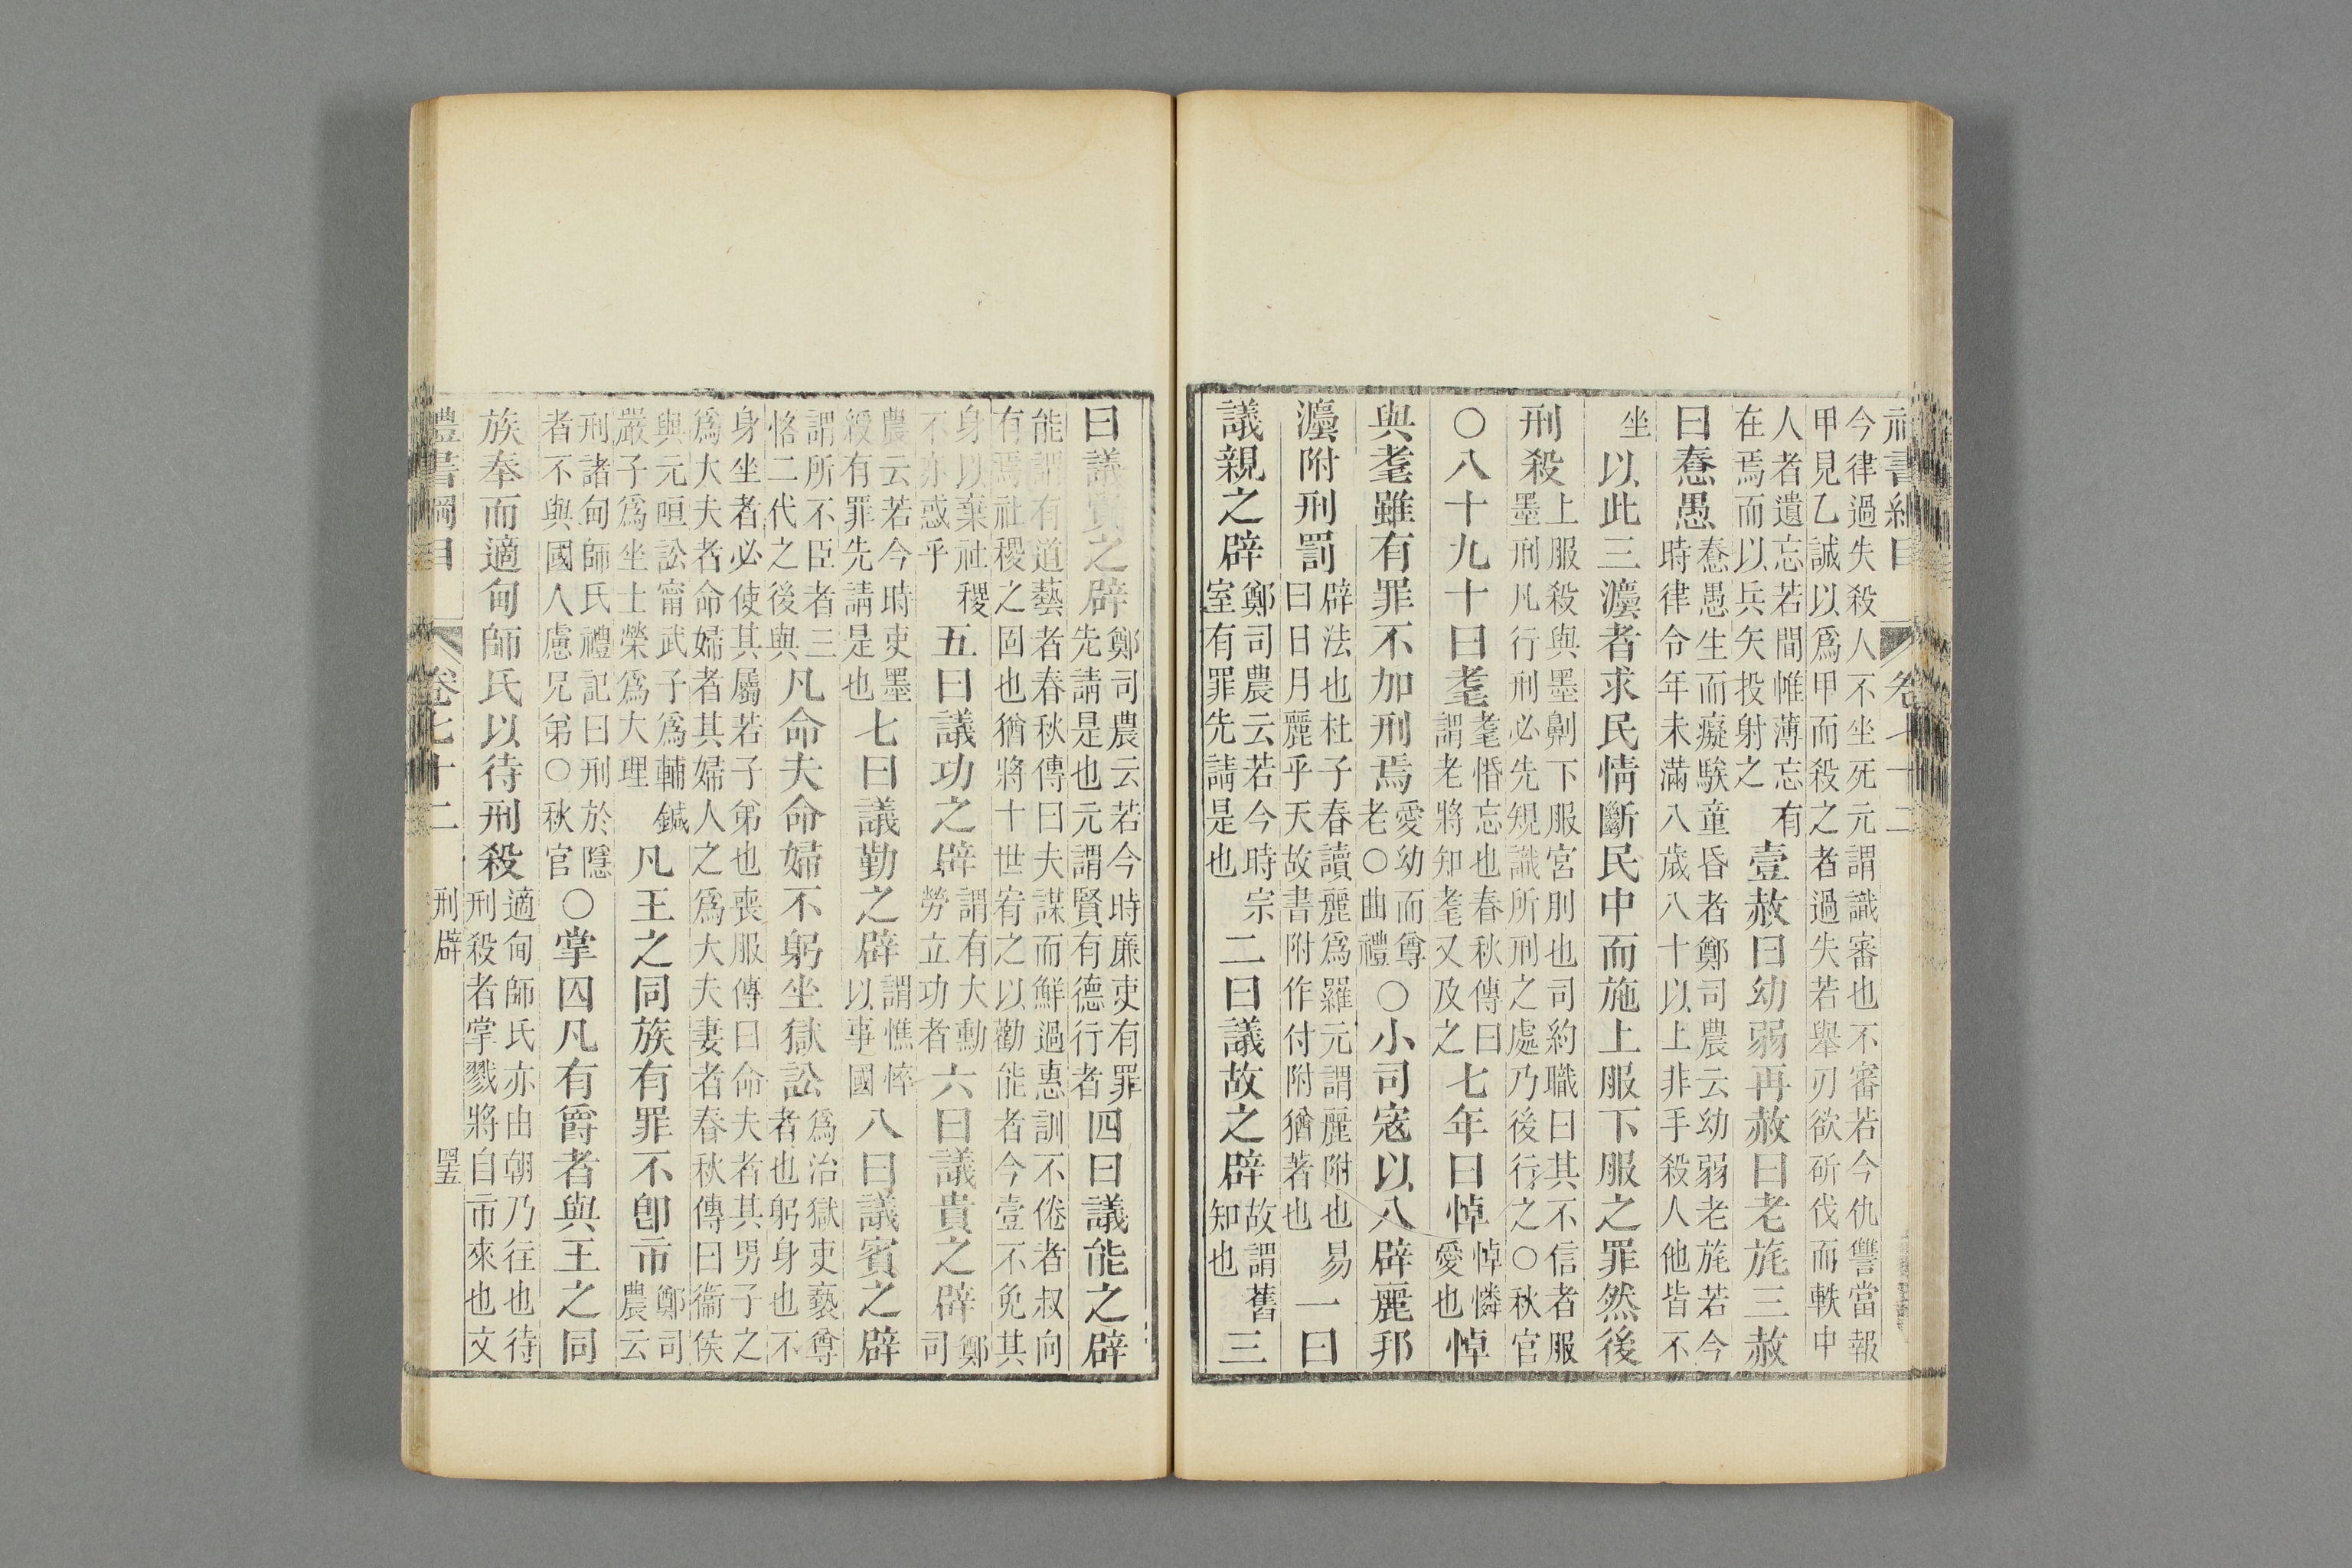 禮書綱目 卷七十二
今律過失殺人不坐死元謂識審也不審若今仇讐當報甲見乙誠以爲甲而殺之者過失若舉刃欲斫伐而軼中
人者遺忘若間帷薄忘有在焉而以兵矢投射之壹赦曰幼弱再赦曰老旄三赦
曰憃愚憃愚生而癡騃童昏者鄭司農云幼弱老旄若今時律令年未滿八歲八十以上非手殺人他皆不
坐以此三灋者求民情斷民中而施上服下服之罪然後
刑殺上服殺與墨劓下服宮刖也司約職曰其不信者服墨刑凡行刑必先規識所刑之處乃後行之○秋官
○八十九十曰耄耄惛忘也春秋傳曰謂老將知耄又及之七年曰悼悼憐愛也悼
與耄雖有罪不加刑焉愛幼而尊老○曲禮○小司寇以八辟麗邦
灋附刑罰辟法也杜子春讀麗爲羅元謂麗附也易曰日月麗乎天故書附作付附猶著也一曰
議親之辟鄭司農云若今時宗室有罪先請是也二曰議故之辟故謂舊知也三
曰議賢之辟鄭司農云若今時廉吏有罪先請是也元謂賢有德行者四曰議能之辟
能謂有道藝者春秋傳曰夫謀而鮮過惠訓不倦者叔向有焉社稷之固也猶將十世宥之以勸能者今壹不免其
身以棄社稷不亦惑乎五曰議功之辟謂有大勳勞立功者六曰議貴之辟鄭司
農云若今時吏墨綬有罪先請是也七曰議勤之辟謂憔悴以事國八曰議賓之辟
謂所不臣者三恪二代之後與凡命夫命婦不躬坐獄訟爲治獄吏褻尊者也躬身也不
身坐者必使其屬若子弟也喪服傳曰命夫者其男子之爲大夫者命婦者其婦人之爲大夫妻者春秋傳曰衞侯
與元咺訟甯武子爲輔鍼嚴子爲坐士榮爲大理凡王之同族有罪不卽市鄭司農云
刑諸甸師氏禮記曰刑於隱者不與國人慮兄弟○秋官○掌囚凡有爵者與王之同
族奉而適甸師氏以待刑殺適甸師氏亦由朝乃往也待刑殺者掌戮將自市來也文
禮書綱目 卷七十二 刑辟